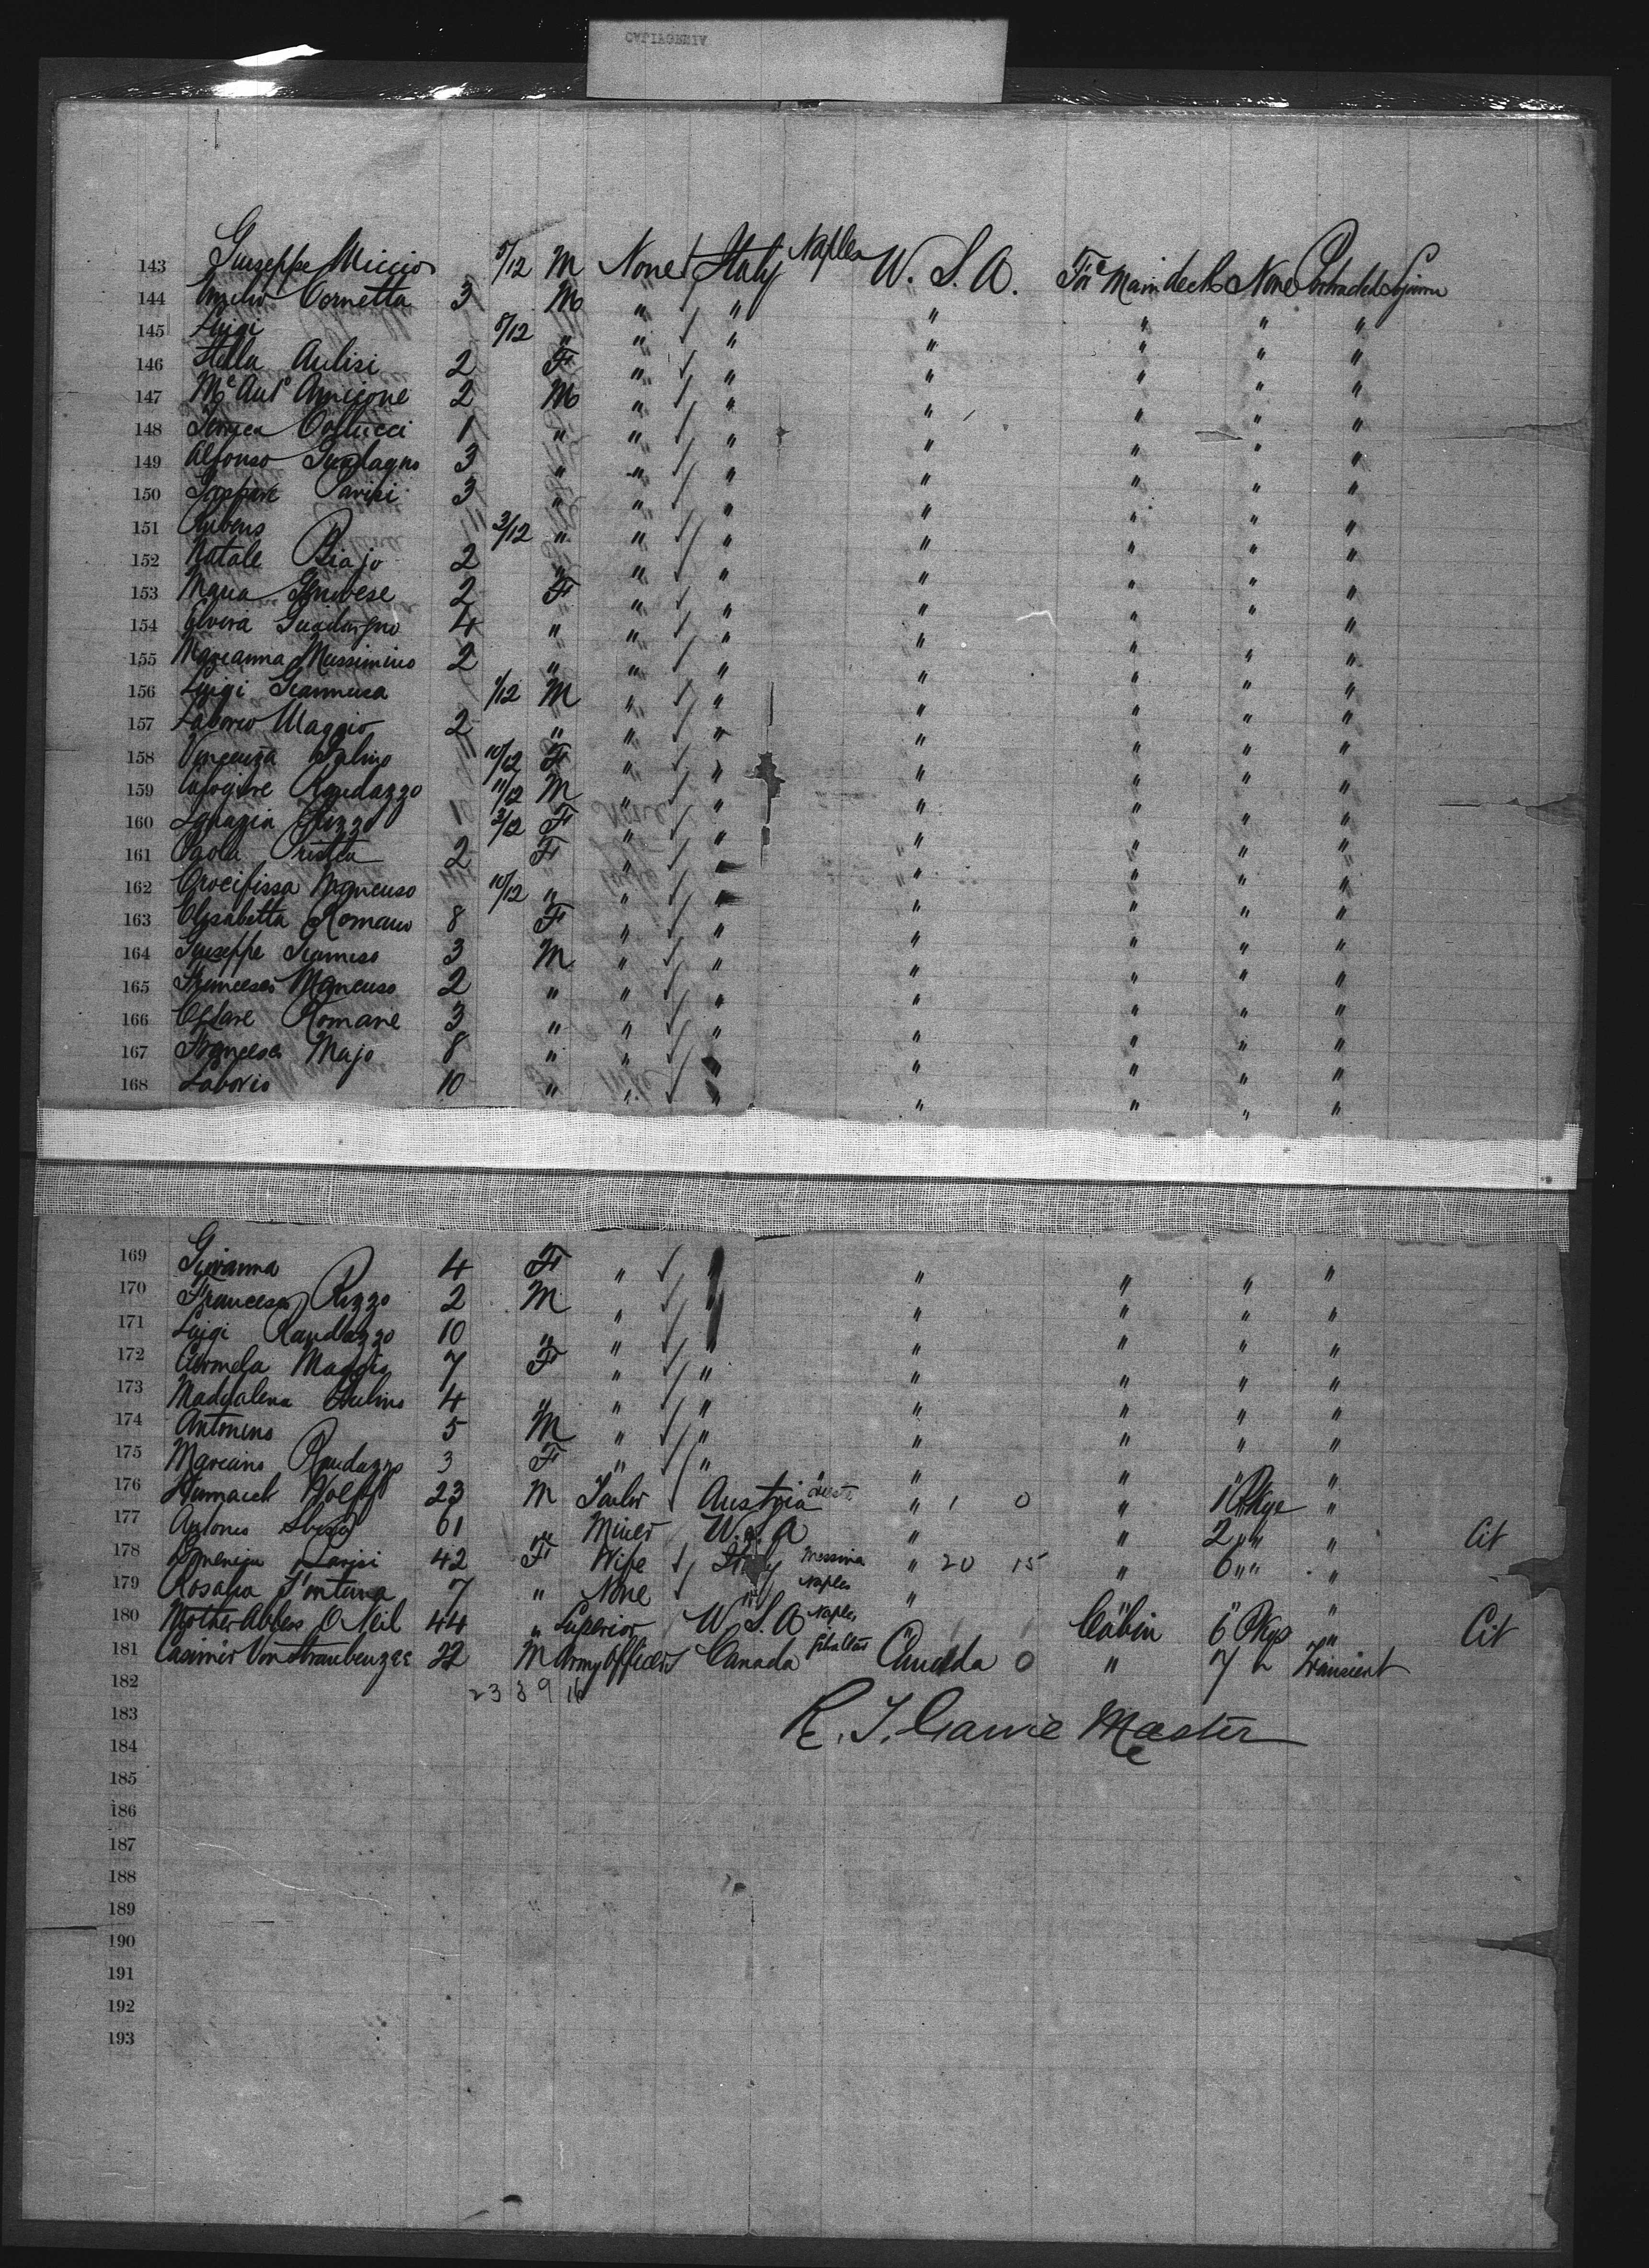 143 Giuseppe Miccio 5/12 M None Italy Naples U. S. A. For Main deck None Protracted Sojourn
144 Emilio Cornetta 3 M " " " " " "
145 Luigi 8/12 " " " " " " "
146 Stella Aulisi 2 F " " " " " "
147 Me Anto Amicone 2 M " " " " " "
148 Collucci 1 " " " " " " "
149 Alfonso Guadagno 3 " " " " " " "
150 Gaspare Parisi 3 " " " " " " "
151 Rubens 3/12 " " " " " " "
152 Natale Biajo 2 " " " " " " "
153 Maria Genovese 2 F " " " " " "
154 Elvira Guadagno 4 " " " " " " "
155 Marianna Messimino 2 " " " " " " "
156 Luigi 1/12 M " " " " " "
157 Laborio Maggio 2 " " " " " " "
158 Vincenza 10/12 F " " " " " "
159 Calogere Randazzo 11/12 M " " " " " "
160 Ignazia Rizzo 3/12 F " " " " " "
161 Paola 2 F " " " " " "
162 Crocifissa Mancuso 10/12 " " " " " " "
163 Elisabetta Romano 8 F " " " " " "
164 Giuseppe 3 M " " " " " "
165 Francesco Mancuso 2 " " " " " " "
166 Cesare Romane 3 " " " " " " "
167 Francesco Majo 8 " " " " " " "
168 Laborio 10 " " " " " " "
169 Giovanna 4 F " " " " " "
170 Francesco Rizzo 2 M " " " " "
171 Luigi Randazzo 10 " " " " " "
172 Carmela Maggio 7 F " " " " " "
173 Madgalena 4 " " " " " " "
174 Antonino 5 M " " " " " "
175 Mariano Randazzo 3 F " " " " "
176 Wolff 23 M Tailor Austria " 1 0 " 1 Pkge "
177 Antonio 61 " Miner U.S.A " 2 " " Cit
178 Parisi 42 F Wife Italy Messina " 20 15 " 6 " "
179 Rosalia Fortuna 7 " None " Naples " "
180 Mother Abbess O Neil 44 " Superior U. S. A Naples " Cabin 6 Pkgs " Cit
181 Casimir Von Straubenzee 22 M Army Officer Canada Gibraltar Canada 0 " 7 " Transient
182 23 8 9 16
183 R. J. Master
184
185
186
187
188
189
190
191
192
193